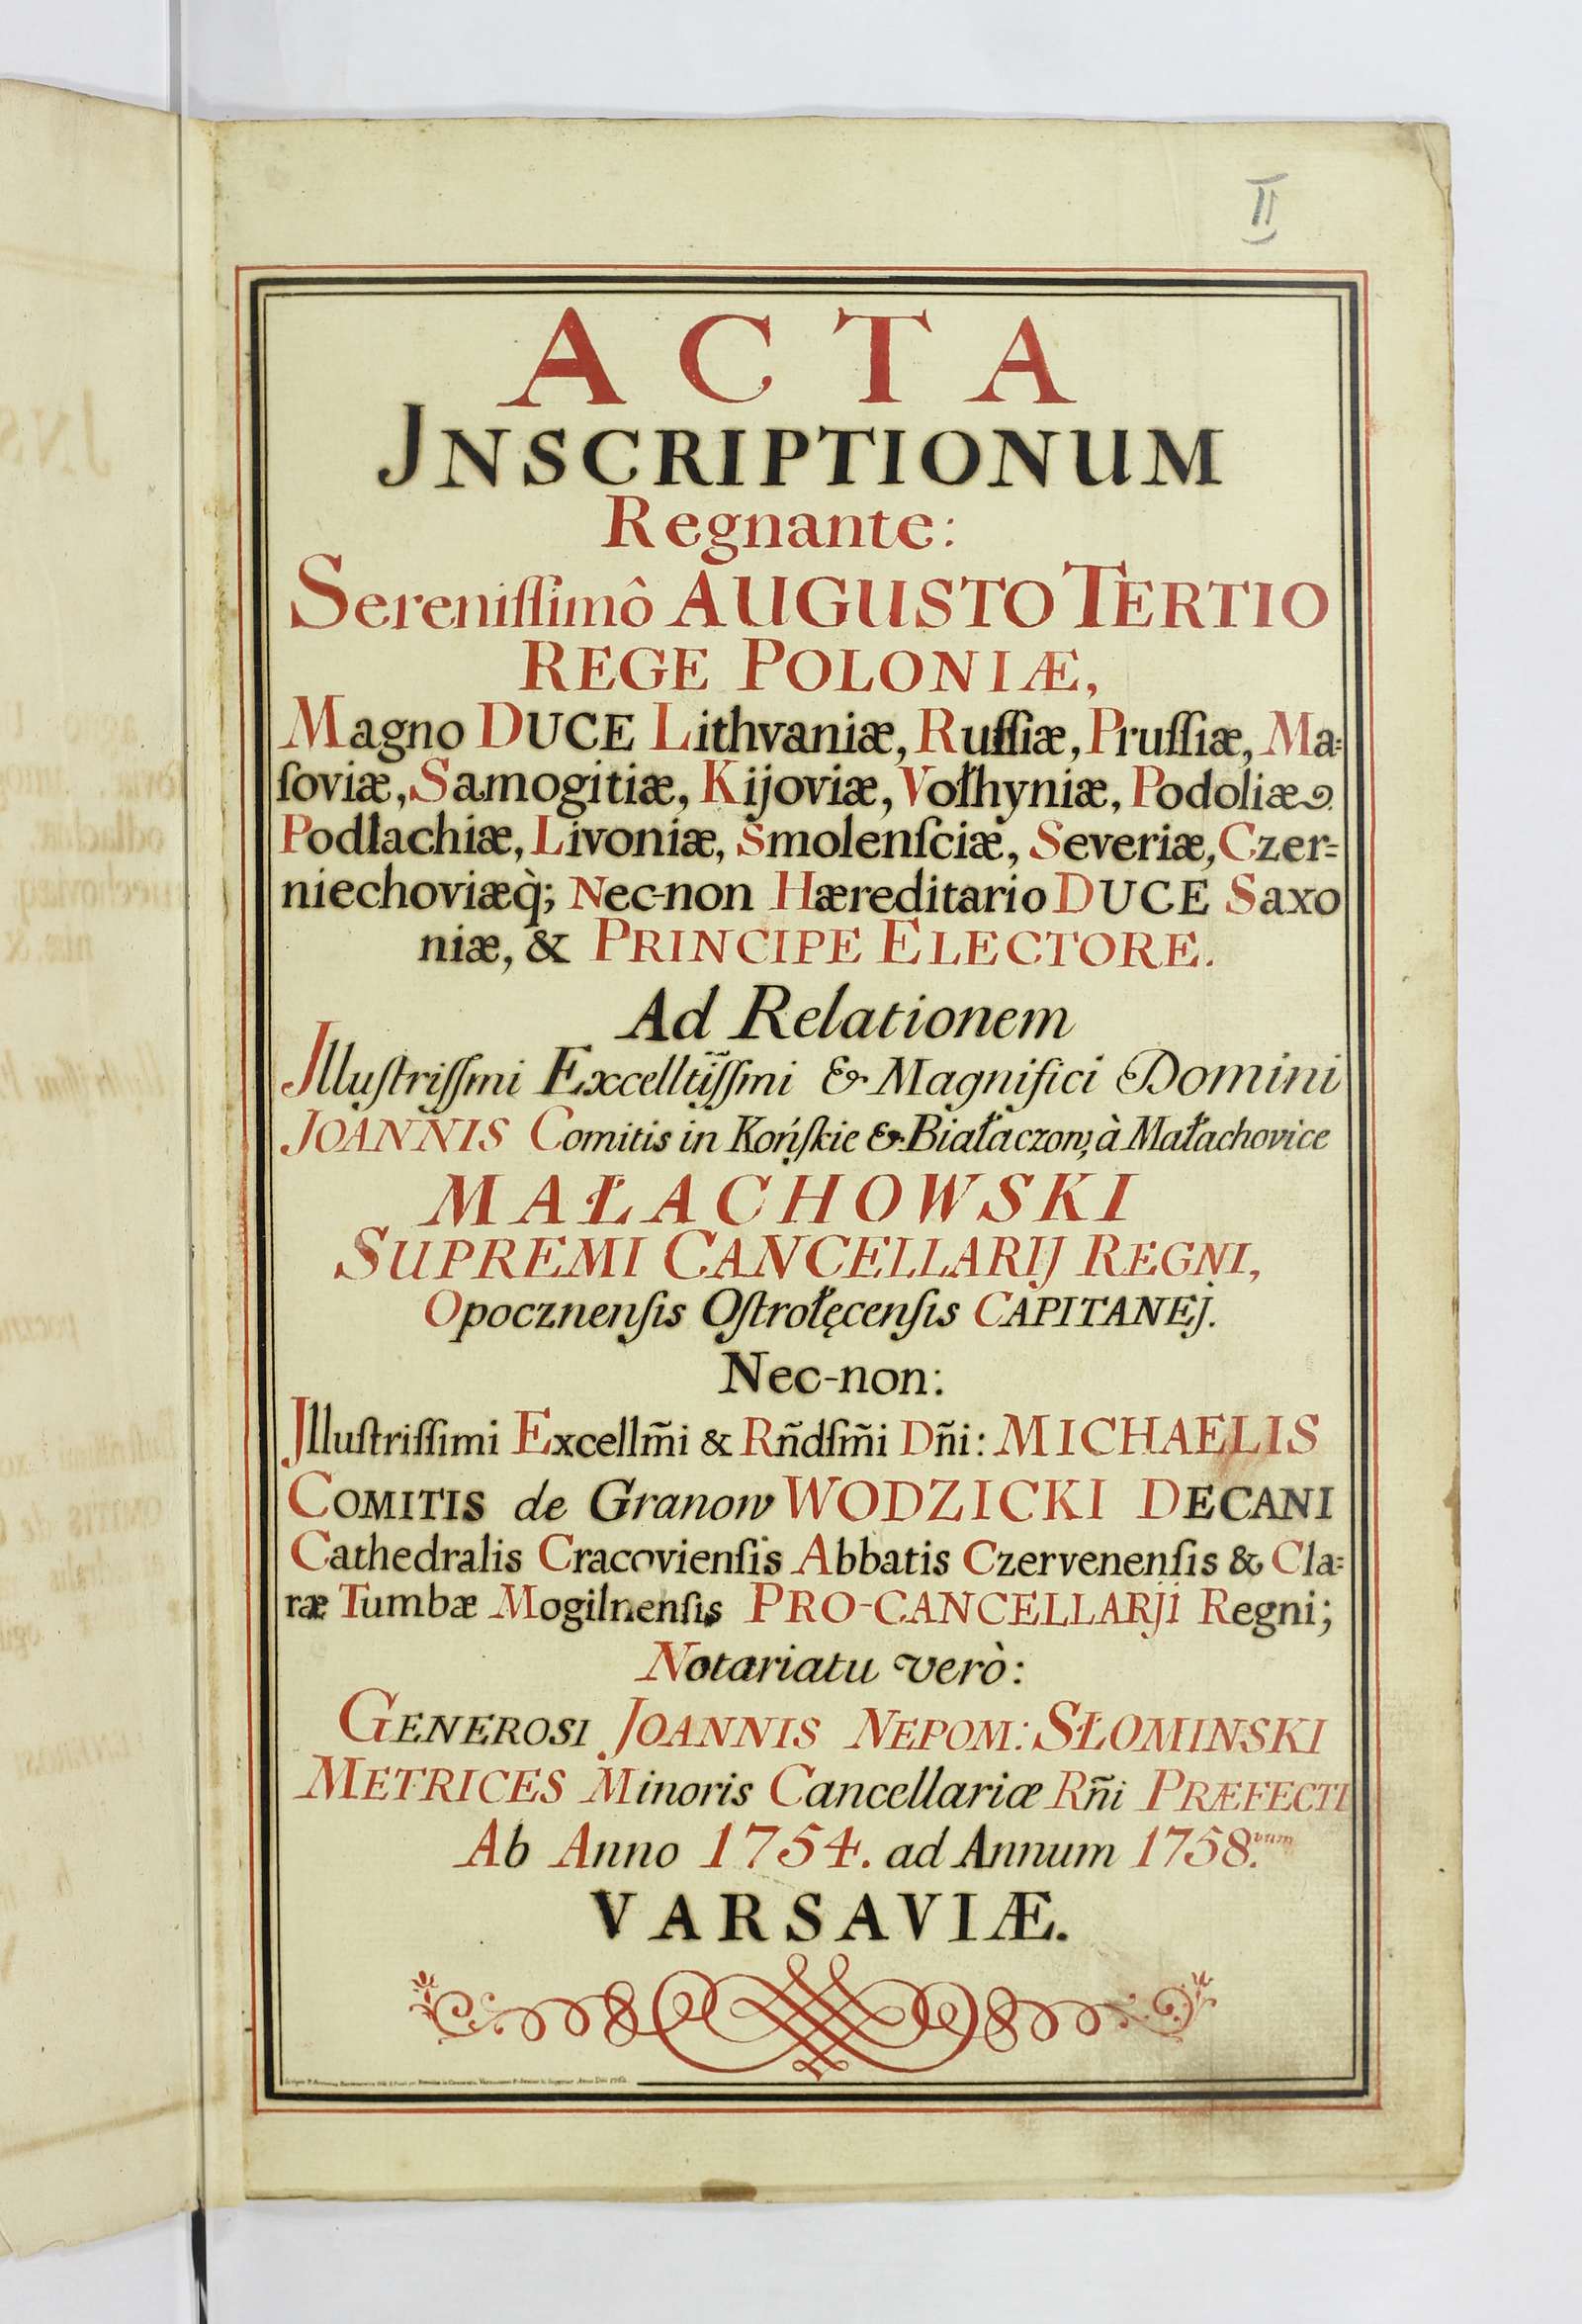 II
ACTA
JNSCRIPTIONUM
Regnante:
Sereniſſimô AUGUSTO TERTIO
REGE POLONIÆ,
Magno DUCE Lithvaniæ, Ruſſiæ, Pruſſiæ, Ma=
ſoviæ, Samogitiæ, Kijoviæ, Vołhyniæ, Podoliæ
Podlachiæ, Livoniæ, Smolenſciæ, Severiæ, Czer=
niechoviæq̀; Nec-non Hæreditario DUCE Saxo
niæ, & PRINCIPE ELECTORE.
Ad Relationem
Jlluſtriſſmi Excelltı̃ſſmi & Magnifici Domini
JOANNIS Comitis in Końſkie & Białaczow, à Małachovice
MAŁACHOWSKI
SUPREMI CANCELLARIJ REGNI,
Opocznenſis Oſtrołęcenſis CAPITANEJ.
Nec-non:
Jlluſtriſſimi Excellm̃i & Rñdſm̃i Dñi: MICHAELIS
COMITIS de Granow WODZICKI DECANI
Cathedralis Cracovienſis Abbatis Czervenenſis & Cla=
ræ Tumbæ Mogilnenſis PRO-CANCELLARJI Regni;
Notariatu verò:
GENEROSI JOANNIS NEPOM: SŁOMINSKI
METRICES Minoris Cancellariæ Rñi PRÆFECTI
Ab Anno 1754. ad Annum 1758.vum
VARSAVIÆ.